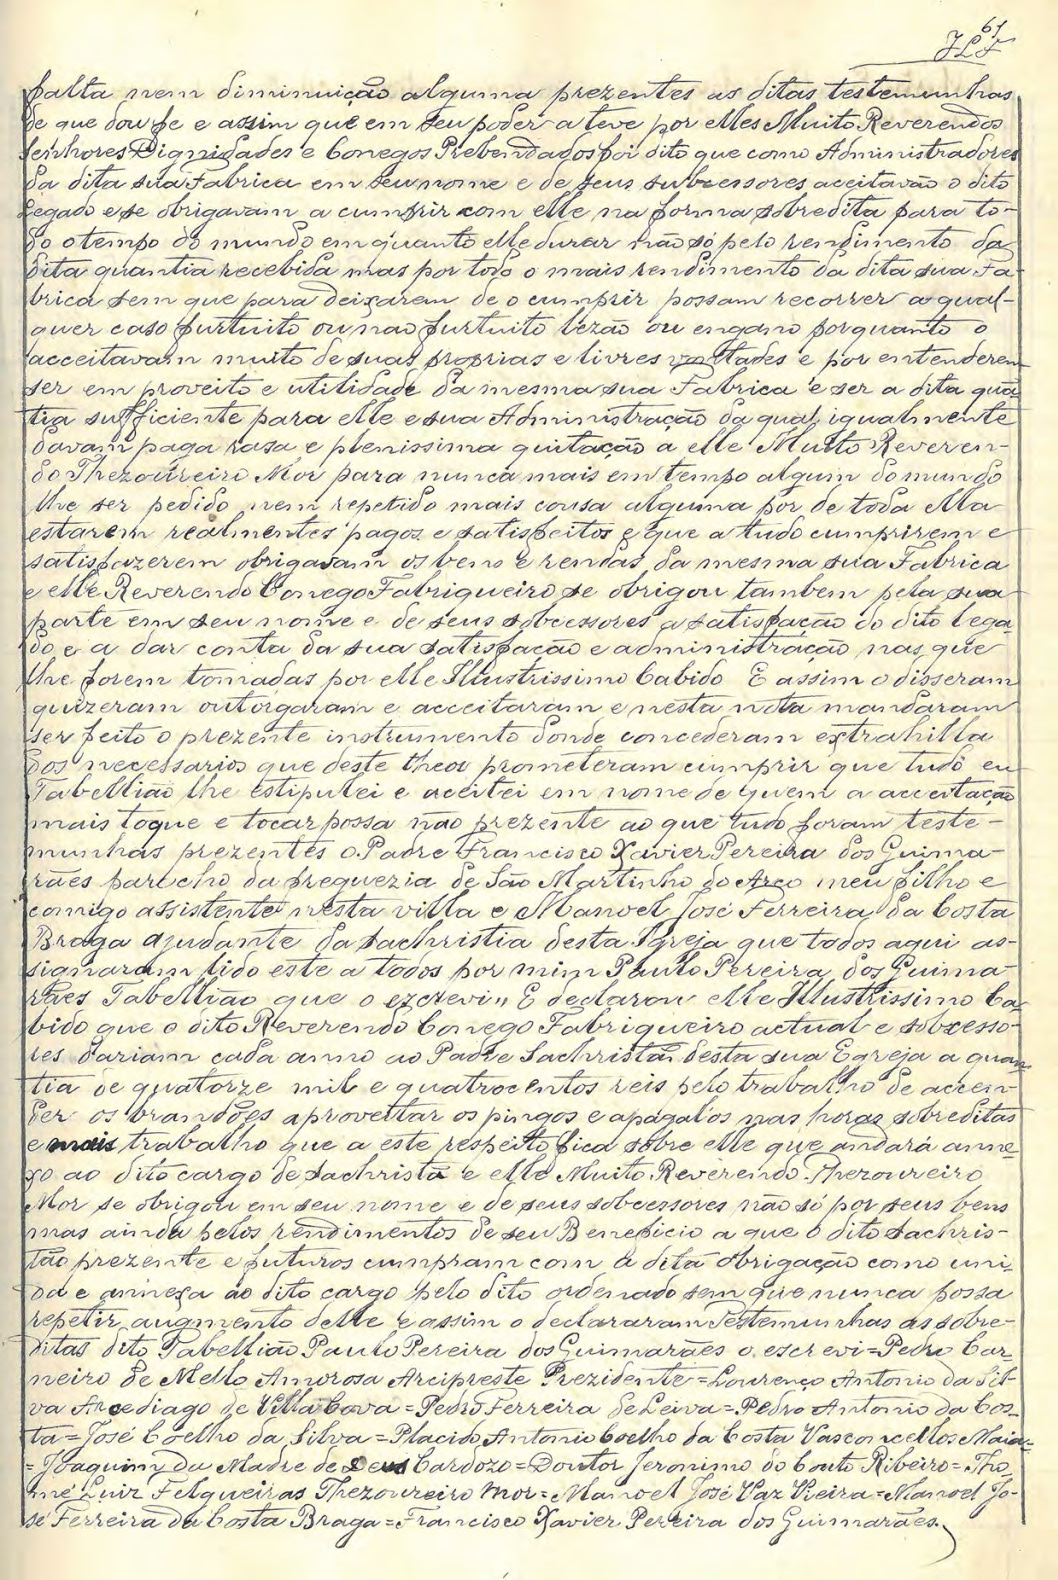 61
JLF
falta nem diminuição alguma prezentes as ditas testemunhas
de que dou fe e assim que em seu poder a teve por elles Muito Reverendos
Senhores Dignidades e Conegos Prebendados foi dito que como Administradores
da dita sua Fabrica em seu nome e de seus subcessores aceitavão o dito
Legado e se obrigavam a cumprir com elle na forma sobredita para to-
do o tempo do mundo em quanto elle durar não só pelo rendimento da
dita quantia recebida mas por todo o mais rendimento da dita sua Fa-
brica sem que para deixarem de o cumprir possam recorrer a qual-
quer caso furtuito ou nao furtuito lezão ou engano porquanto o
acceitavam muito de suas proprias e livres vontades e por entenderem
ser em proveito e utilidade da mesma sua Fabrica e ser a dita quan
tia sufficiente para elle e sua Administração da qual igualmente
davam paga rasa e plenissima quitação a elle Muito Reveren-
do Thezoureiro Mor para nunca mais em tempo algum do mundo
lhe ser pedido nem repetido mais cousa alguma por de toda ella
estarem realmentes pagos e satisfeitos e que a tudo cumprirem e
satisfazerem obrigavam os bens e rendas da mesma sua Fabrica
e elle Reverendo Conego Fabriqueiro se obrigou tambem pela sua
parte em seu nome e de seus sobcessores a satisfação do dito lega-
do e a dar conta da sua satisfacão e administração nas que
lhe forem tomadas por elle Illustrissimo Cabido E assim o disseram
quizeram outorgaram e acceitaram e nesta nota mandaram
ser feito o prezente instrumento donde concederam extrahilla
dos necessarios que deste theor prometeram cumprir que tudo eu
Tabellião lhe estipulei e aceitei em nome de quem a acceitação
mais toque e tocar possa não prezente ao que tudo foram teste-
munhas prezentes o Padre Francisco Xavier Pereira dos Guima-
rães parocho da freguezia de São Martinho do Arco meu filho e
comigo assistente nesta villa e Manoel José Ferreira da Costa
Braga ajudante da Sachristia desta Igreja que todos aqui as-
signaram lido este a todos por mim Paulo Pereira dos Guima-
rães Tabellião que o escrevi" E declarou elle Illustrissimo Ca-
bido que o dito Reverendo Conego Fabriqueiro actual e sobcesso-
res dariam cada anno ao Padre Sachristão desta sua Egreja a quan
tia de quatorze mil e quatrocentos reis pelo trabalho de accen-
der os brandões aproveitar os pingos e apagal'os nas horas sobreditas
e mais trabalho que a este respeito fica sobre elle que andará anne-
xo ao dito cargo de Sachristã e elle Muito Reverendo Thezoureiro
Mor se obrigou em seu nome e de seus sobcessores não só por seus bens
mas ainda pelos rendimentos de seu Beneficio a que o dito Sachris-
tão prezente e futuros cumpram com a dita obrigação como uni-
da e annexa ao dito cargo pelo dito ordenado sem que nunca possa
repetir augmento delle e assim o declararam Testemunhas as sobre-
ditas dito Tabellião Paulo Pereira dos Guimarães o escrevi=Pedro Car
neiro de Mello Amorosa Arcipreste Prezidente=Lourenço Antonio da Sil-
va Arcediago de Villa Cova=Pedro Ferreira de Leiva=Pedro Antonio da Cos-
ta=José Coelho da Silva=Placido Antonio Coelho da Costa Vasconcellos Maia=
=Joaquim da Madre de Deus Cardozo=Doutor Jeronimo do Couto Ribeiro=Tho-
mé Luiz Felgueiras Thezoureiro Mor=Manoel José Vaz Vieira=Manoel Jo-
sé Ferreira da Costa Braga=Francisco Xavier Pereira dos Guimarães.